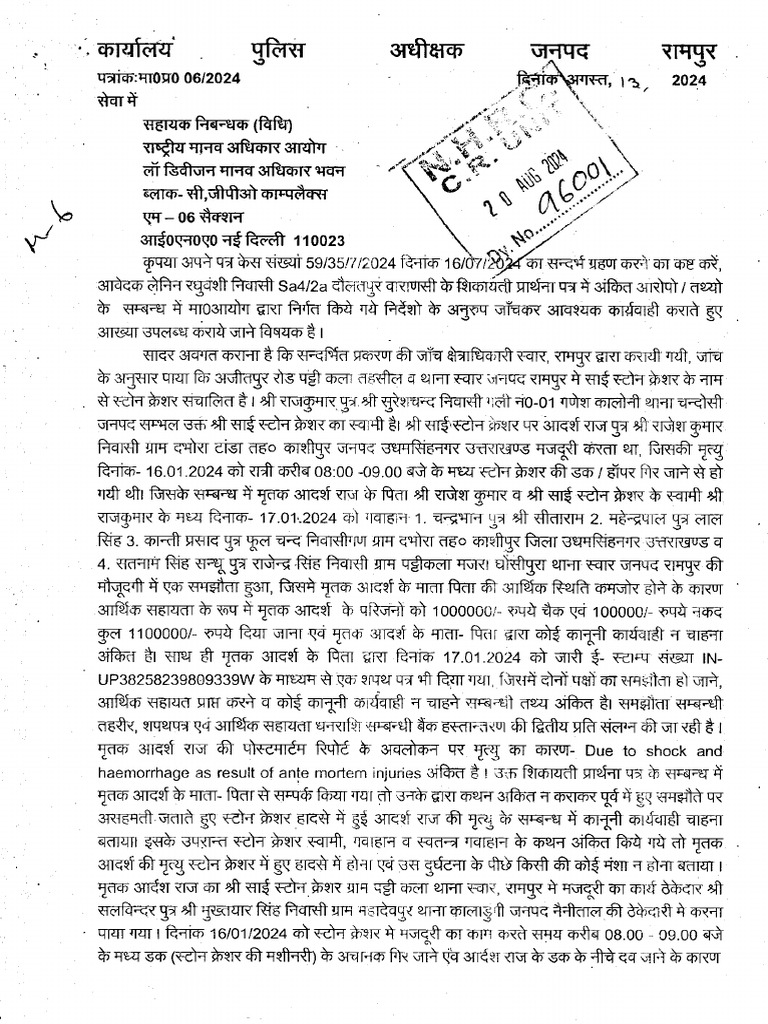 कार्यालय पुलिस अधीक्षक जनपद रामपुर
पत्रांकःमा0प्र0 06/2024 दिनांक अगस्त, 13, 2024
सेवा में
सहायक निबन्धक (विधि)
राष्ट्रीय मानव अधिकार आयोग
लॉ डिवीजन मानव अधिकार भवन
ब्लाक- सी,जीपीओ काम्पलैक्स
एम – 06 सैक्शन
आई0एन0ए0 नई दिल्ली 110023
N.H.R.C.
C.R. UNIT
20 AUG 2024
Dy. No. 96001
M-6
कृपया अपने पत्र केस संख्या 59/35/7/2024 दिनांक 16/07/2024 का सन्दर्भ ग्रहण करने का कष्ट करें,
आवेदक लेनिन रघुवंशी निवासी Sa4/2a दौलतपुर वाराणसी के शिकायती प्रार्थना पत्र में अंकित आरोपो / तथ्यो
के सम्बन्ध में मा0आयोग द्वारा निर्गत किये गये निर्देशो के अनुरुप जाँचकर आवश्यक कार्यवाही कराते हुए
आख्या उपलब्ध कराये जाने विषयक है ।
सादर अवगत कराना है कि सन्दर्भित प्रकरण की जाँच क्षेत्राधिकारी स्वार, रामपुर द्वारा करायी गयी, जांच
के अनुसार पाया कि अजीतपुर रोड पट्टी कला तहसील व थाना स्वार जनपद रामपुर मे साई स्टोन क्रेशर के नाम
से स्टोन क्रेशर संचालित है । श्री राजकुमार पुत्र श्री सुरेशचन्द निवासी गली नं0-01 गणेश कालोनी थाना चन्दोसी
जनपद सम्भल उक्त श्री साई स्टोन क्रेशर का स्वामी है। श्री साई स्टोन क्रेशर पर आदर्श राज पुत्र श्री राजेश कुमार
निवासी ग्राम दभोरा टांडा तह० काशीपुर जनपद उधमसिंहनगर उत्तराखण्ड मजदूरी करता था, जिसकी मृत्यु
दिनांक- 16.01.2024 को रात्री करीब 08:00 -09.00 बजे के मध्य स्टोन क्रेशर की डक / हॉपर गिर जाने से हो
गयी थी। जिसके सम्बन्ध में मृतक आदर्श राज के पिता श्री राजेश कुमार व श्री साई स्टोन क्रेशर के स्वामी श्री
राजकुमार के मध्य दिनाक- 17.01.2024 को गवाहान 1. चन्द्रभान पुत्र श्री सीताराम 2. महेन्द्रपाल पुत्र लाल
सिंह 3. कान्ती प्रसाद पुत्र फूल चन्द निवासीगण ग्राम दभोरा तह० काशीपुर जिला उधमसिंहनगर उत्तराखण्ड व
4. सतनाम सिंह सन्धू पुत्र राजेन्द्र सिंह निवासी ग्राम पट्टीकला मजरा घोसीपुरा थाना स्वार जनपद रामपुर की
मौजूदगी में एक समझौता हुआ, जिसमे मृतक आदर्श के माता पिता की आर्थिक स्थिति कमजोर होने के कारण
आर्थिक सहायता के रूप में मृतक आदर्श के परिजनों को 1000000/- रुपये चैक एवं 100000/- रुपये नकद
कुल 1100000/- रुपये दिया जाना एवं मृतक आदर्श के माता- पिता द्वारा कोई कानूनी कार्यवाही न चाहना
अंकित है। साथ ही मृतक आदर्श के पिता द्वारा दिनांक 17.01.2024 को जारी ई- स्टाम्प संख्या IN-
UP38258239809339W के माध्यम से एक शपथ पत्र भी दिया गया, जिसमें दोनों पक्षों का समझौता हो जाने,
आर्थिक सहायत प्राप्त करने व कोई कानूनी कार्यवाही न चाहने सम्बन्धी तथ्य अंकित है। समझौता सम्बन्धी
तहरीर, शपथपत्र एवं आर्थिक सहायता धनराशि सम्बन्धी बैंक हस्तान्तरण की द्वितीय प्रति संलग्न की जा रही है ।
मृतक आदर्श राज की पोस्टमार्टम रिपोर्ट के अवलोकन पर मृत्यु का कारण- Due to shock and
haemorrhage as result of ante mortem injuries अंकित है । उक्त शिकायती प्रार्थना पत्र के सम्बन्ध में
मृतक आदर्श के माता- पिता से सम्पर्क किया गया तो उनके द्वारा कथन अंकित न कराकर पूर्व में हुए समझौते पर
असहमती जताते हुए स्टोन क्रेशर हादसे में हुई आदर्श राज की मृत्यु के सम्बन्ध में कानूनी कार्यवाही चाहना
बताया। इसके उपरान्त स्टोन क्रेशर स्वामी, गवाहान व स्वतन्त्र गवाहान के कथन अंकित किये गये तो मृतक
आदर्श की मृत्यु स्टोन क्रेशर में हुए हादसे में होना एवं उस दुर्घटना के पीछे किसी की कोई मंशा न होना बताया ।
मृतक आर्दश राज का श्री साई स्टोन क्रेशर ग्राम पट्टी कला थाना स्वार, रामपुर मे मजदूरी का कार्य ठेकेदार श्री
सलविन्दर पुत्र श्री मुख्तयार सिंह निवासी ग्राम महादेवपुर थाना कालाढुगी जनपद नैनीताल की ठेकेदारी मे करना
पाया गया । दिनांक 16/01/2024 को स्टोन क्रेशर मे मजदूरी का काम करते समय करीब 08.00 - 09.00 बजे
के मध्य डक (स्टोन क्रेशर की मशीनरी) के अचानक गिर जाने एंव आर्दश राज के डक के नीचे दव जाने के कारण